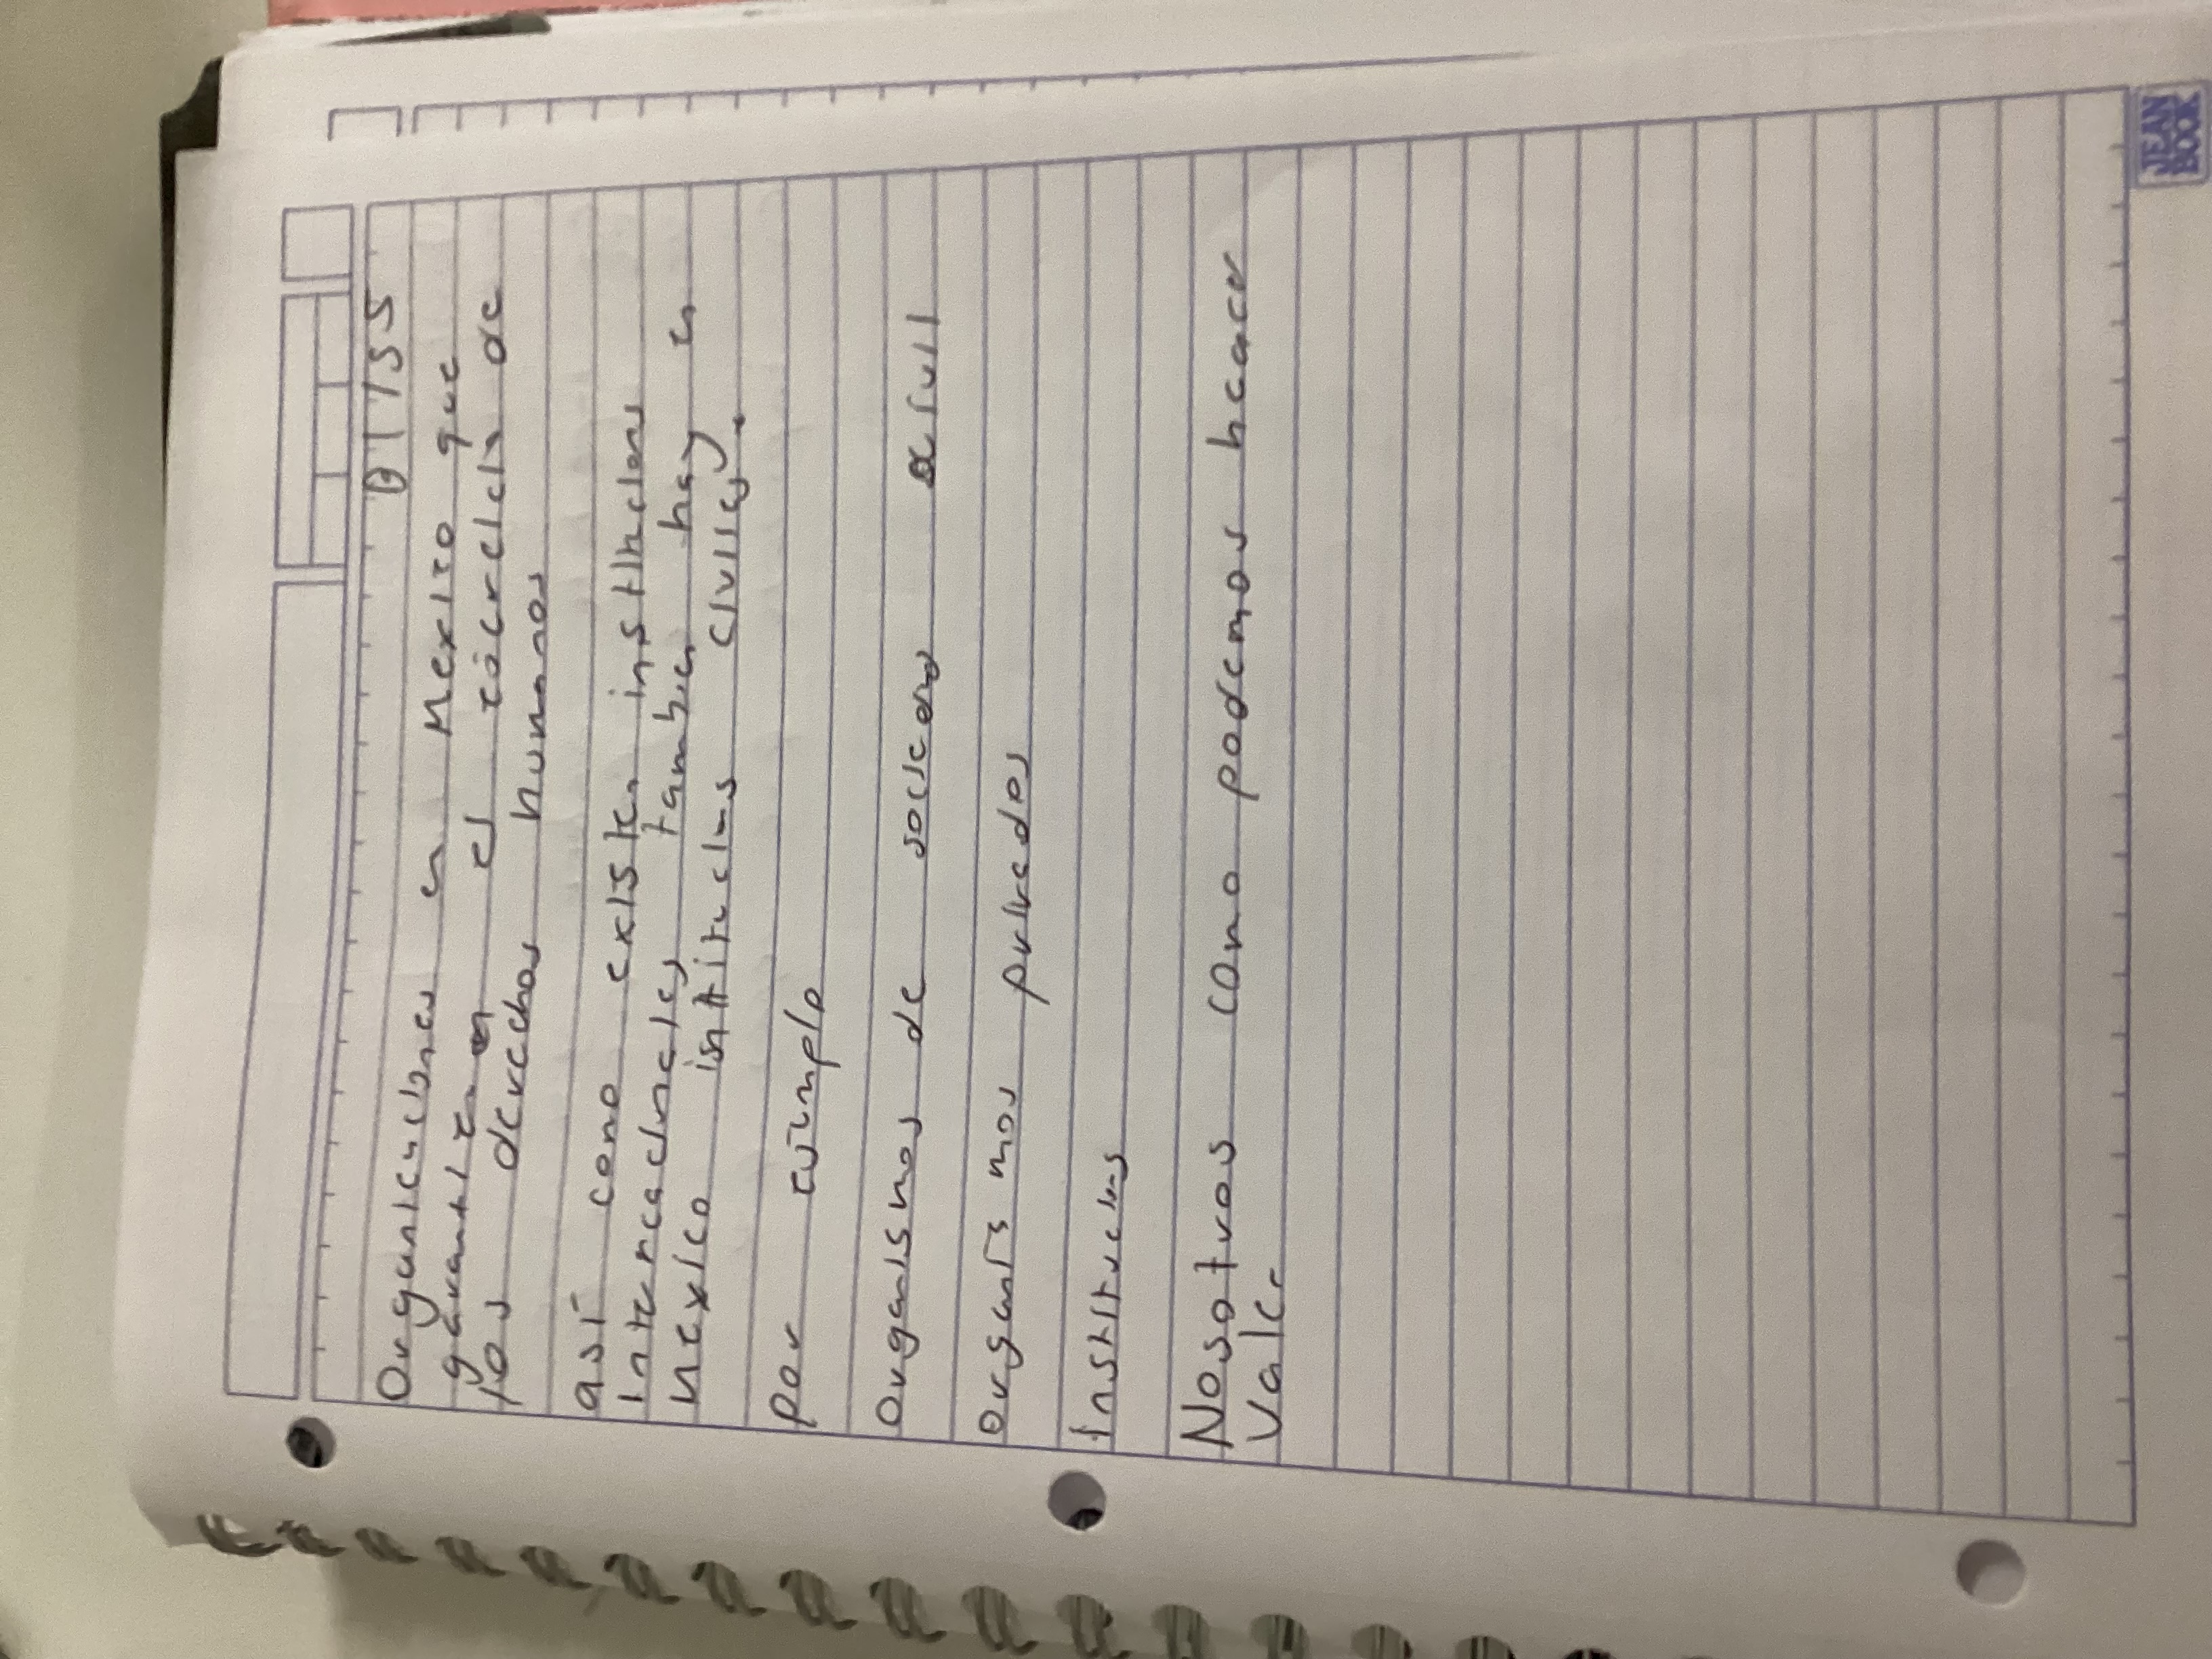 Organizaciones en Mexico que
garantizan el ejercicio de
los derechos humanos
asi como existen instituciones
internacionales tambien hay en
mexico instituciones civiles.
por ejemplo
Organismos de sociedad civil
organismos privados
Instituciones
Nosotros como podemos hacer
Valer
JEAN
BOOK